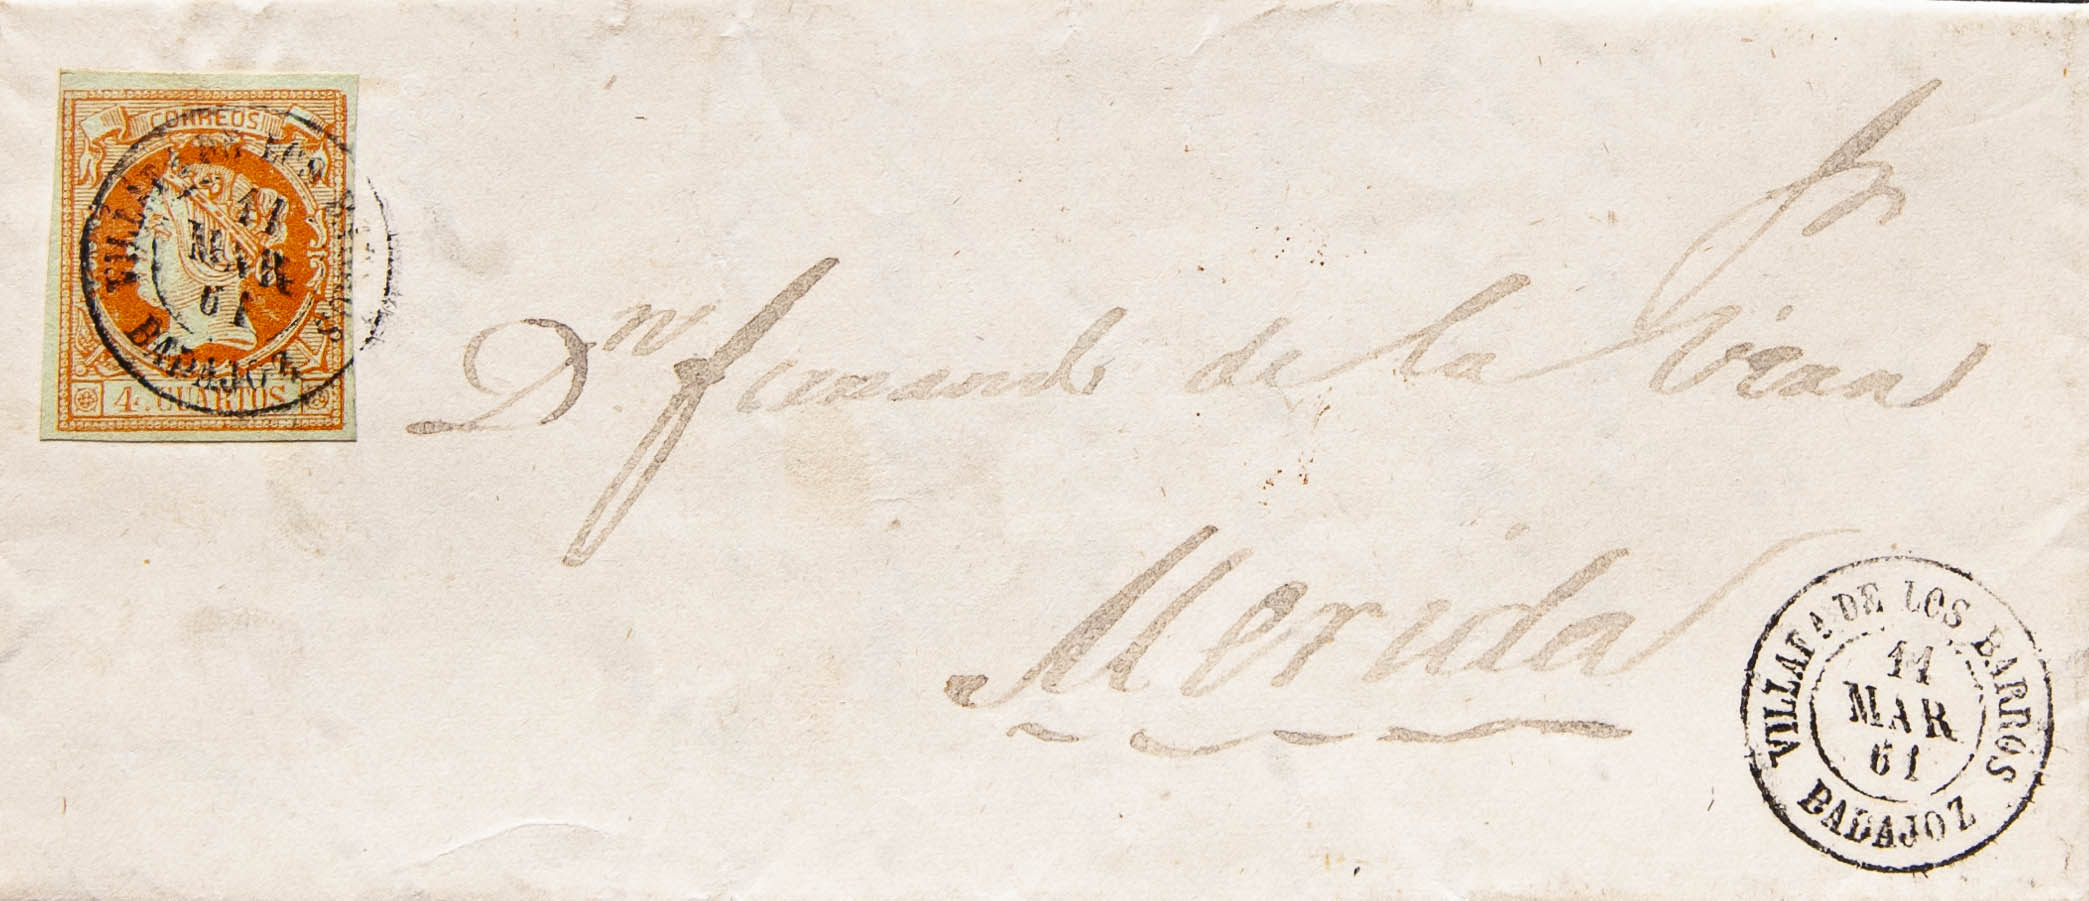 CORREOS
4 CUARTOS
VILLAFA DE LOS BARROS
11
MAR
61
BADAJOZ
Sr
Dn fernando de la
Merida
VILLAFA DE LOS BARROS
11
MAR
61
BADAJOZ